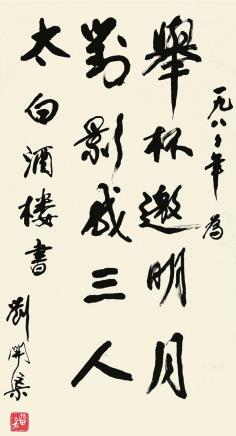 一九八〇年 为
举杯邀明月
對影成三人
太白酒楼書
劉開渠